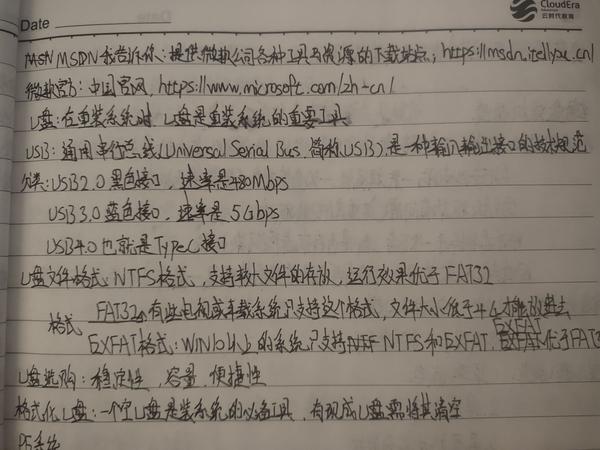 CloudEra
云时代教育
Date
MSN MSDN我告诉你:提供微软公司各种工具及资源的下载站点,https://msdn.itellyou.cn/
微软官方:中国官网,https://www.microsoft.com/zh-cn/
U盘:在重装系统时 U盘是重装系统的重要工具
USB:通用串行总线(Universal Serial Bus,简称USB),是一种输入输出接口的技术规范
分类:USB2.0黑色接口,速率是480Mbps
USB3.0蓝色接口,速率是5Gbps
USB4.0也就是TypeC接口
U盘文件格式:NTFS格式,支持较大文件的存放,运行效果优于FAT32
FAT32 有些电视或车载系统只支持这个格式,文件大小低于4G才能放进去
格式
EXFAT
EXFAT格式:WIN10以上的系统只支持NTFS和EXFAT,优于FAT3
U盘选购:稳定性,容量,便捷性
格式化U盘:一个空U盘是装系统的必备工具,有现成U盘需将其清空
PE系统